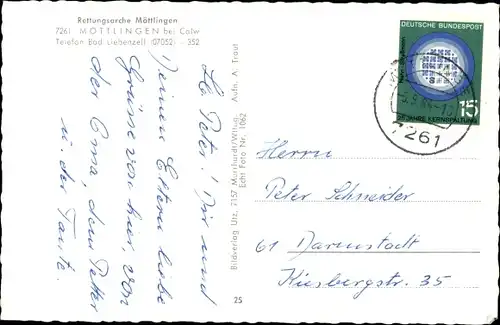 Rettungsarche Möttlingen
7261 MÖTTLINGEN bei Calw
Telefon Bad Liebenzell (07052) - 352
Lb. Peter! Dir und
Deinen Eltern liebe
Grüsse von hier, von
der Oma, dem Vetter
u. der Tante.
Bildverlag Utz, 7157 Murrhardt/Wttbg. Aufn. A. Traut
Echt Foto Nr. 1062
25
DEUTSCHE BUNDESPOST
15
JAHRE KERNSPALTUNG
7261
Herrn
Peter Schneider
61 Darmstadt
Kiesbergstr. 35